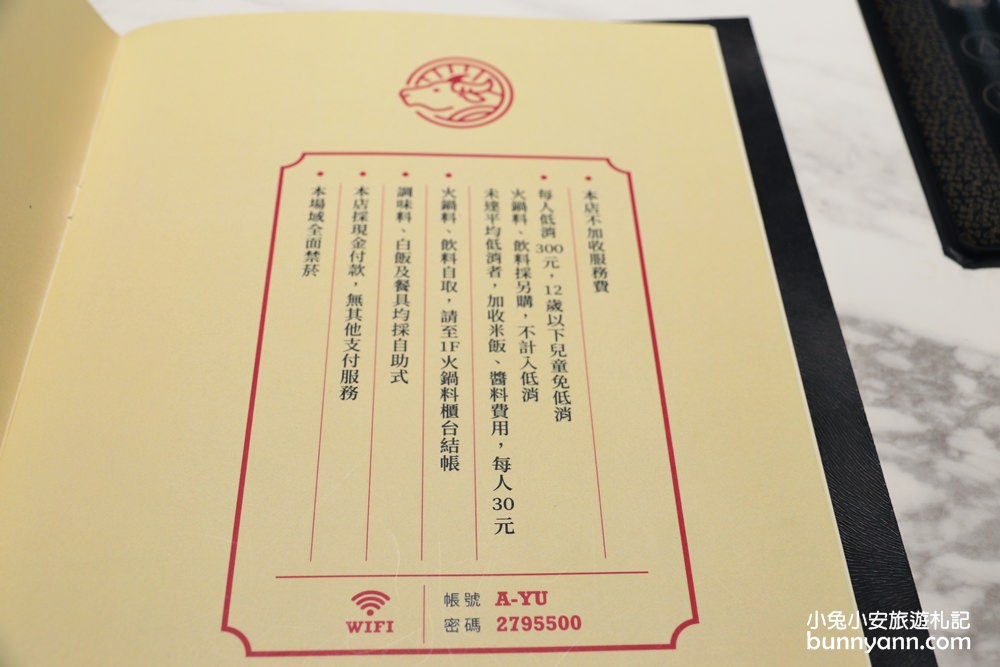 本店不加收服務費
每人低消300元，12歲以下兒童免低消
火鍋料、飲料採另購，不計入低消
未達平均低消者，加收米飯、醬料費用，每人30元
火鍋料、飲料自取，請至1F火鍋料櫃台結帳
調味料、白飯及餐具均採自助式
本店採現金付款，無其他支付服務
本場域全面禁菸
WIFI
帳號 A-YU
密碼 2795500
小兔小安旅遊札記
bunnyann.com